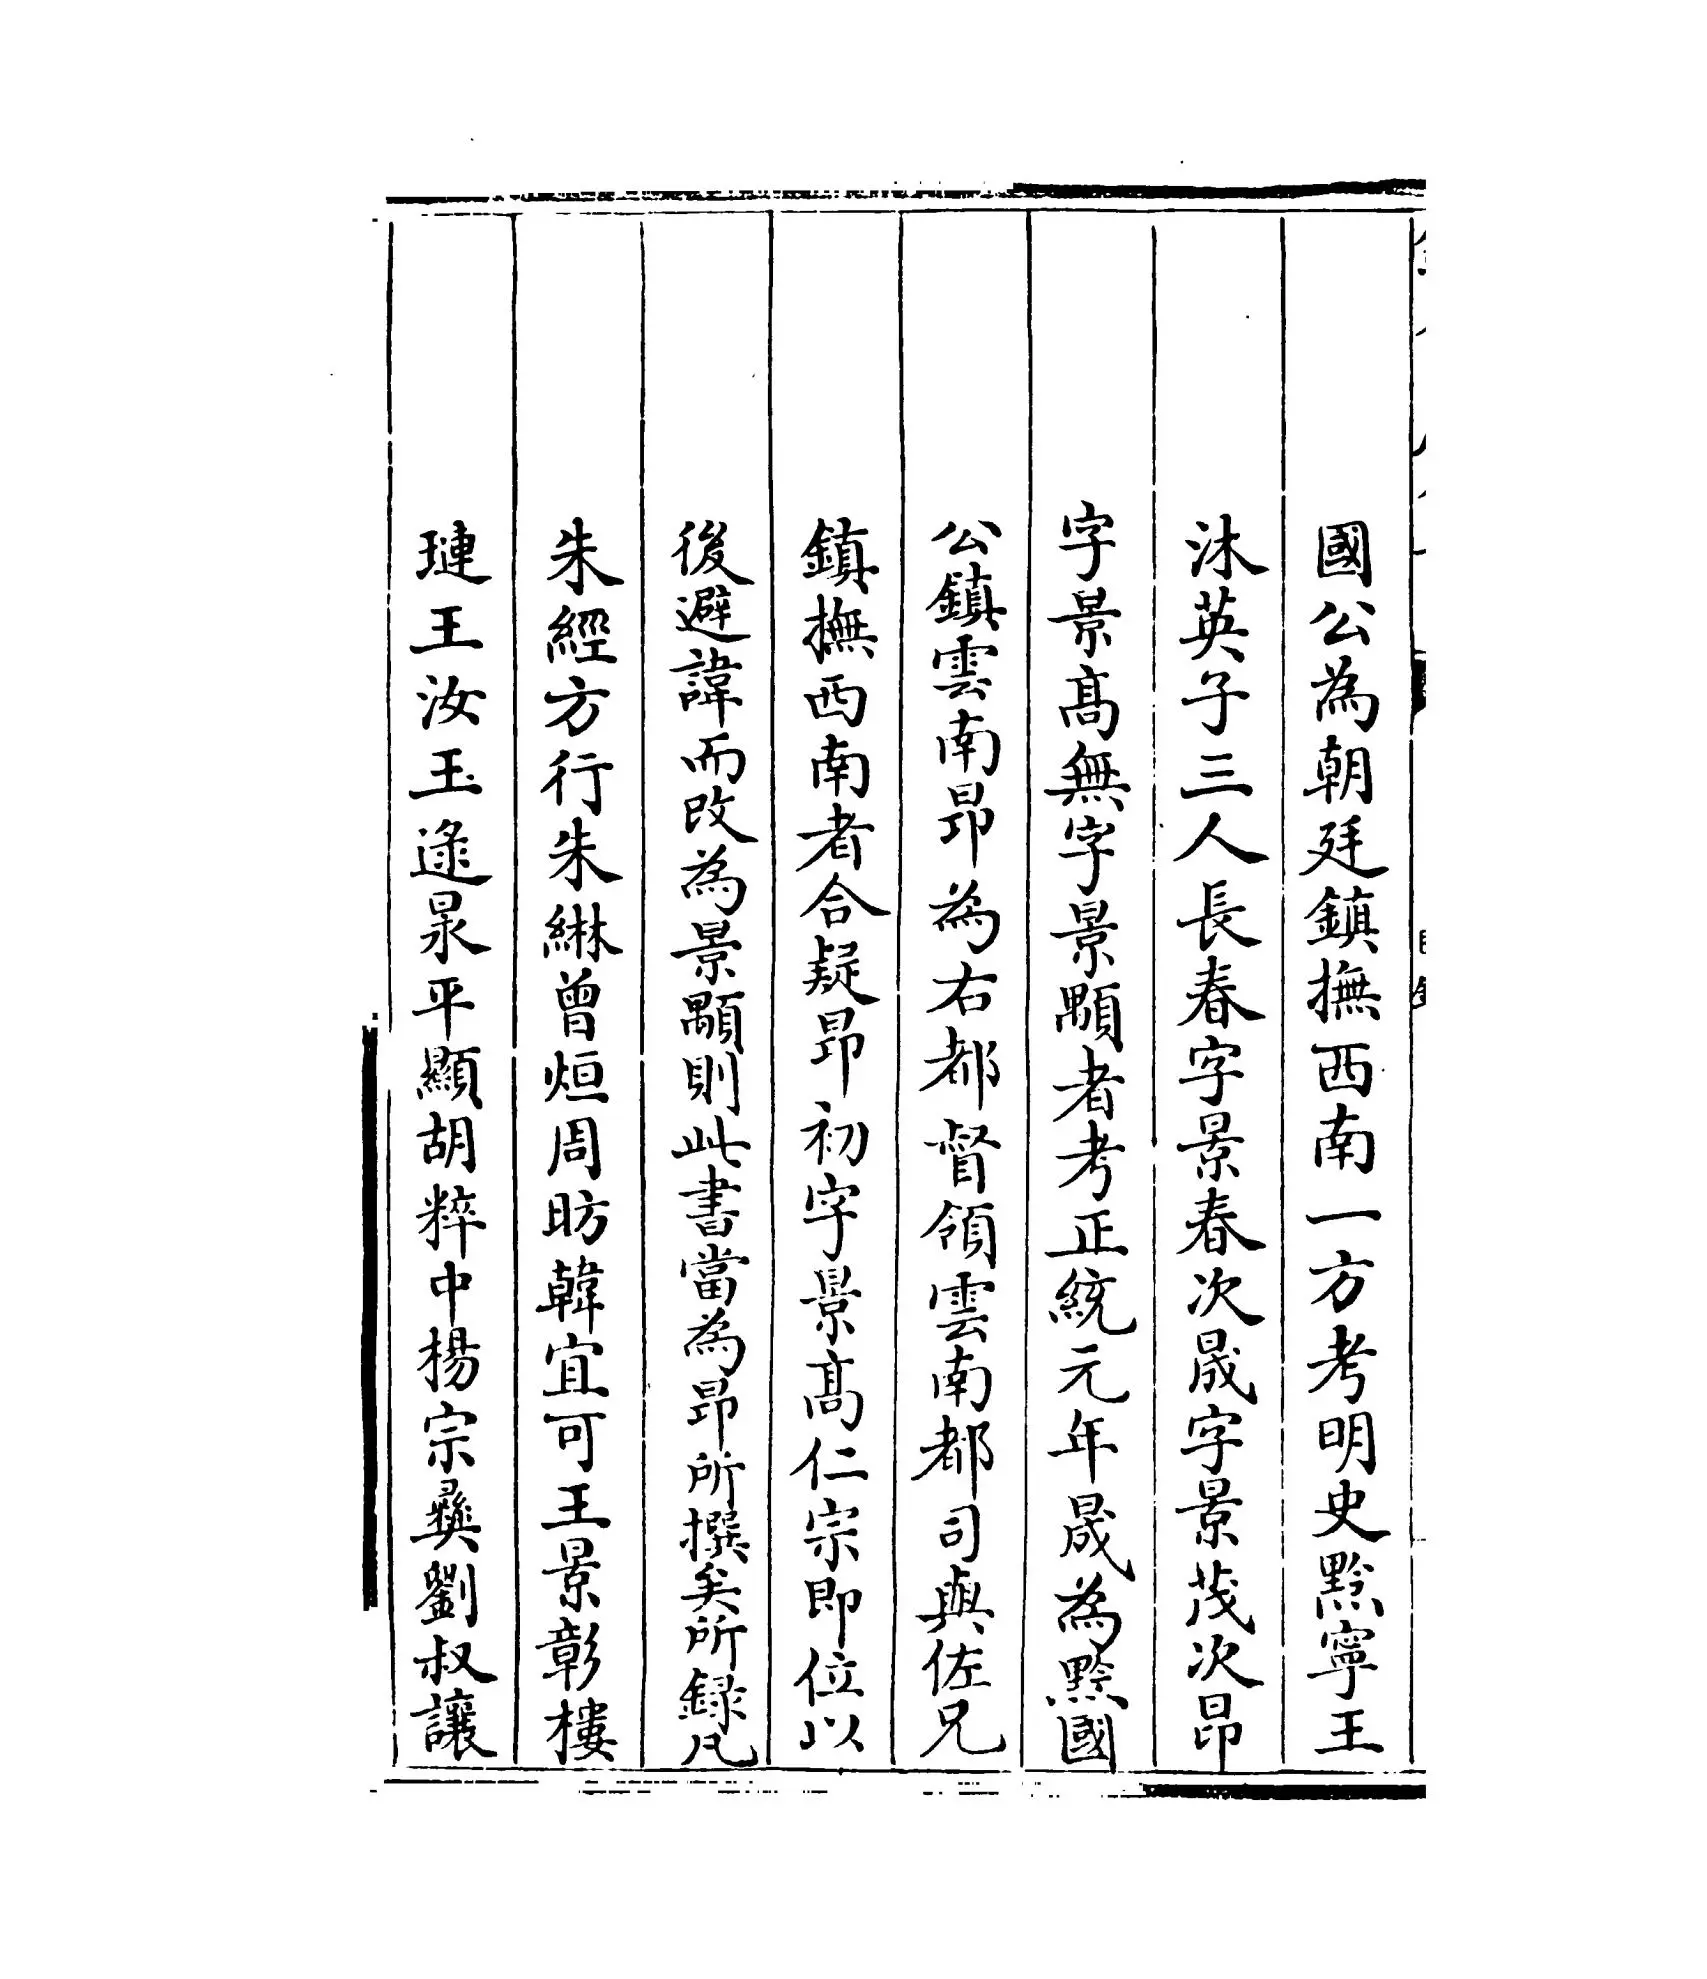 國公為朝廷鎮撫西南一方考明史黔寧王
沐英子三人長春字景春次晟字景茂次昂
字景高無字景顒者考正統元年晟為黔國
公鎮雲南昂為右都督領雲南都司與佐兄
鎮撫西南者合疑昂初字景高仁宗即位以
後避諱而改為景顒則此書當為昂所撰矣所録凡
朱經方行朱綝曾烜周昉韓宜可王景彰樓
璉王汝玉逯杲平顯胡粹中楊宗彝劉叔讓